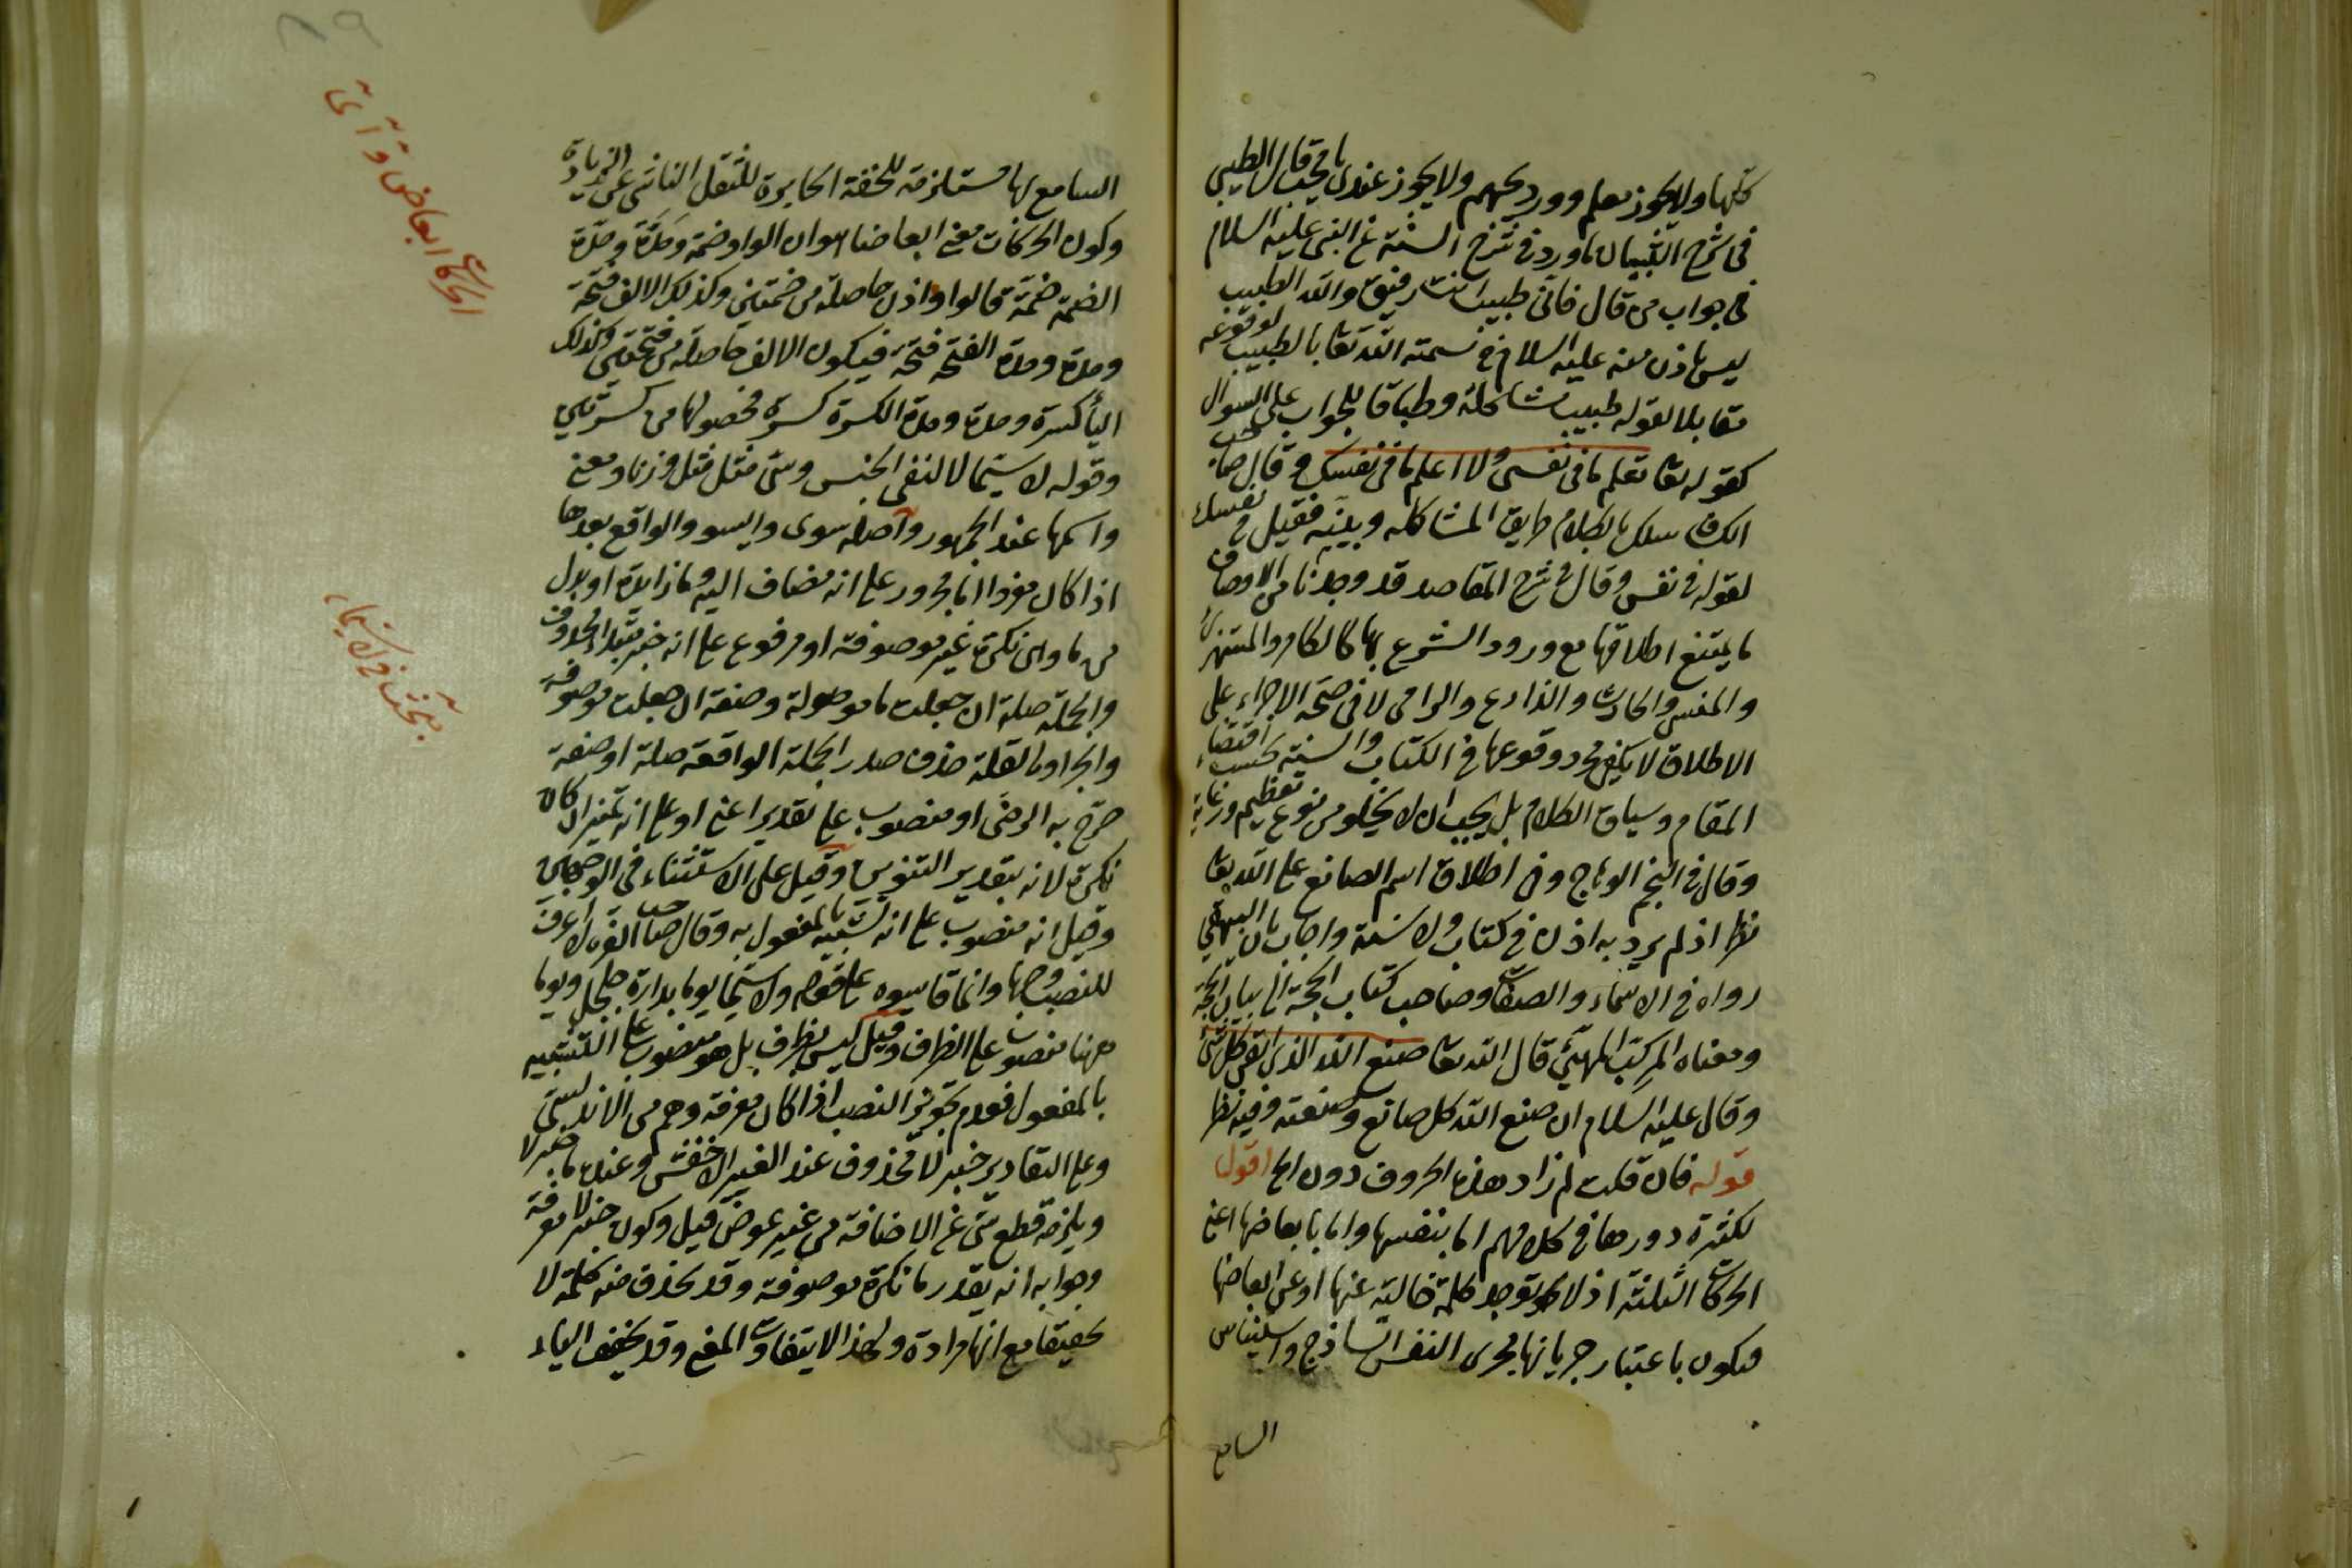 كلها ولا يجوز معلم وورد يحبهم ولا يجوز عندي يا محب قال الطيبي
في شرح التبيان ما ورد في شرح السنة عن النبي عليه السلام
في جواب من قال فاني طبيب انت رفيق والله الطبيب
ليس باذن منه عليه السلام في تسمية الله تعا بالطبيب لوقوعه
مقابلا لقوله طبيب مشاكلة وطباقا للجواب على السوال
كقوله تعا تعلم ما في نفسي ولا اعلم ما في نفسك وقال صاحب
الكشاف سلك بالكلام طريق المشاكلة وبينه فقيل في نفسك
لقوله في نفسي وقال في شرح المقاصد قد وجدنا من الاوصاف
ما يمتنع اطلاقها مع ورود الشرع بها كالماكر والمستهزئ
والمنشئ والحارث والزارع والرامي لا في صحة الاجراء على
الاطلاق لا يكفي مجرد وقوعها في الكتاب والسنة بحسب اقتضاء
المقام وسياق الكلام بل يجب ان لا يخلو من نوع تعظيم ورعاية
وقال في النجم الوهاج وفي اطلاق اسم الصانع على الله تعا
نظر اذ لم يرد به اذن في كتاب ولا سنة واجاب بان البيهقي
رواه في الاسماء والصفات وصاحب كتاب الحجة الى بيان المحجة
ومعناه المركب المهيئ قال الله تعا صنع الله الذي اتقن كل شئ
وقال عليه السلام ان صنع الله كل صانع وصنعته وفيه نظر
قوله فان قلت لم زاد هذه الحروف دون الخ اقول
لكثرة دورها في كلامهم اما بنفسها واما بابعاضها اعني
الحركات الثلثة اذ لا توجد كلمة خالية عنها او عن ابعاضها
فيكون باعتبار جريانها مجرى النفس الساذج واستيناس
السامع
السامع لها مستلزمة للخفة الجابرة للثقل الناشي عن الزيادة
وكون الحركات معنى ابعاضا هوان الواو ضمة ومدة ومدة
الضمة ضمة قالوا واذن حاصلة من ضمتين وكذلك الالف فتحة
ومدة ومدة الفتحة فتحة فيكون الالف حاصلة من فتحتين وكذلك
الياء كسرة ومدة ومدة الكسرة كسرة فحصولها من كسرتين
وقوله لا سيما لا لنفي الجنس وسي مثل مثل وزنا ومعنى
واسمها عند الجمهور واصله سوى واليسو والواقع بعدها
اذا كان مفردا اما مجرور على انه مضاف اليه وما زايدة او بدل
من ما وهي نكرة غير موصوفة او مرفوع على انه خبر مبتداء محذوف
والجملة صلة ان جعلت ما موصولة وصفة ان جعلت موصوفة
والجر اولى لقلة حذف صدر الجملة الواقعة صلة او صفة
صرح به الرضي او منصوب على تقدير اعني او على انه تمييز ان كان
نكرة لانه بتقدير التنوين وقيل على الاستثناء في الوجهين
وقيل انه منصوب على انه تشبيه بالمفعول به وقال صاحب الفراء لا اعرف
للنصب وجها وانما قاسوه على قولهم ولا سيما يوما بدارة جلجل ويوما
ههنا منصوب على الظرف وقيل ليس بظرف بل هو منصوب على التشبيه
بالمفعول فعدم تجويز النصب اذا كان معرفة وهم من الاندلسي
وعلى التقادير خبر لا محذوف عند الغير الاخفش وعنده ما خبر لا
ويلزمه قطع سي عن الاضافة من غير عوض قيل وكون خبر لا معرفة
وجوابه انه يقدر ما نكرة موصوفة وقد يحذف منه كلمة لا
تخفيفا مع انها مرادة ولهذا لا يتفاوت المعنى وقد يخفف الياء
الحركات ابعاض و ا ى
مبحث في لا سيما